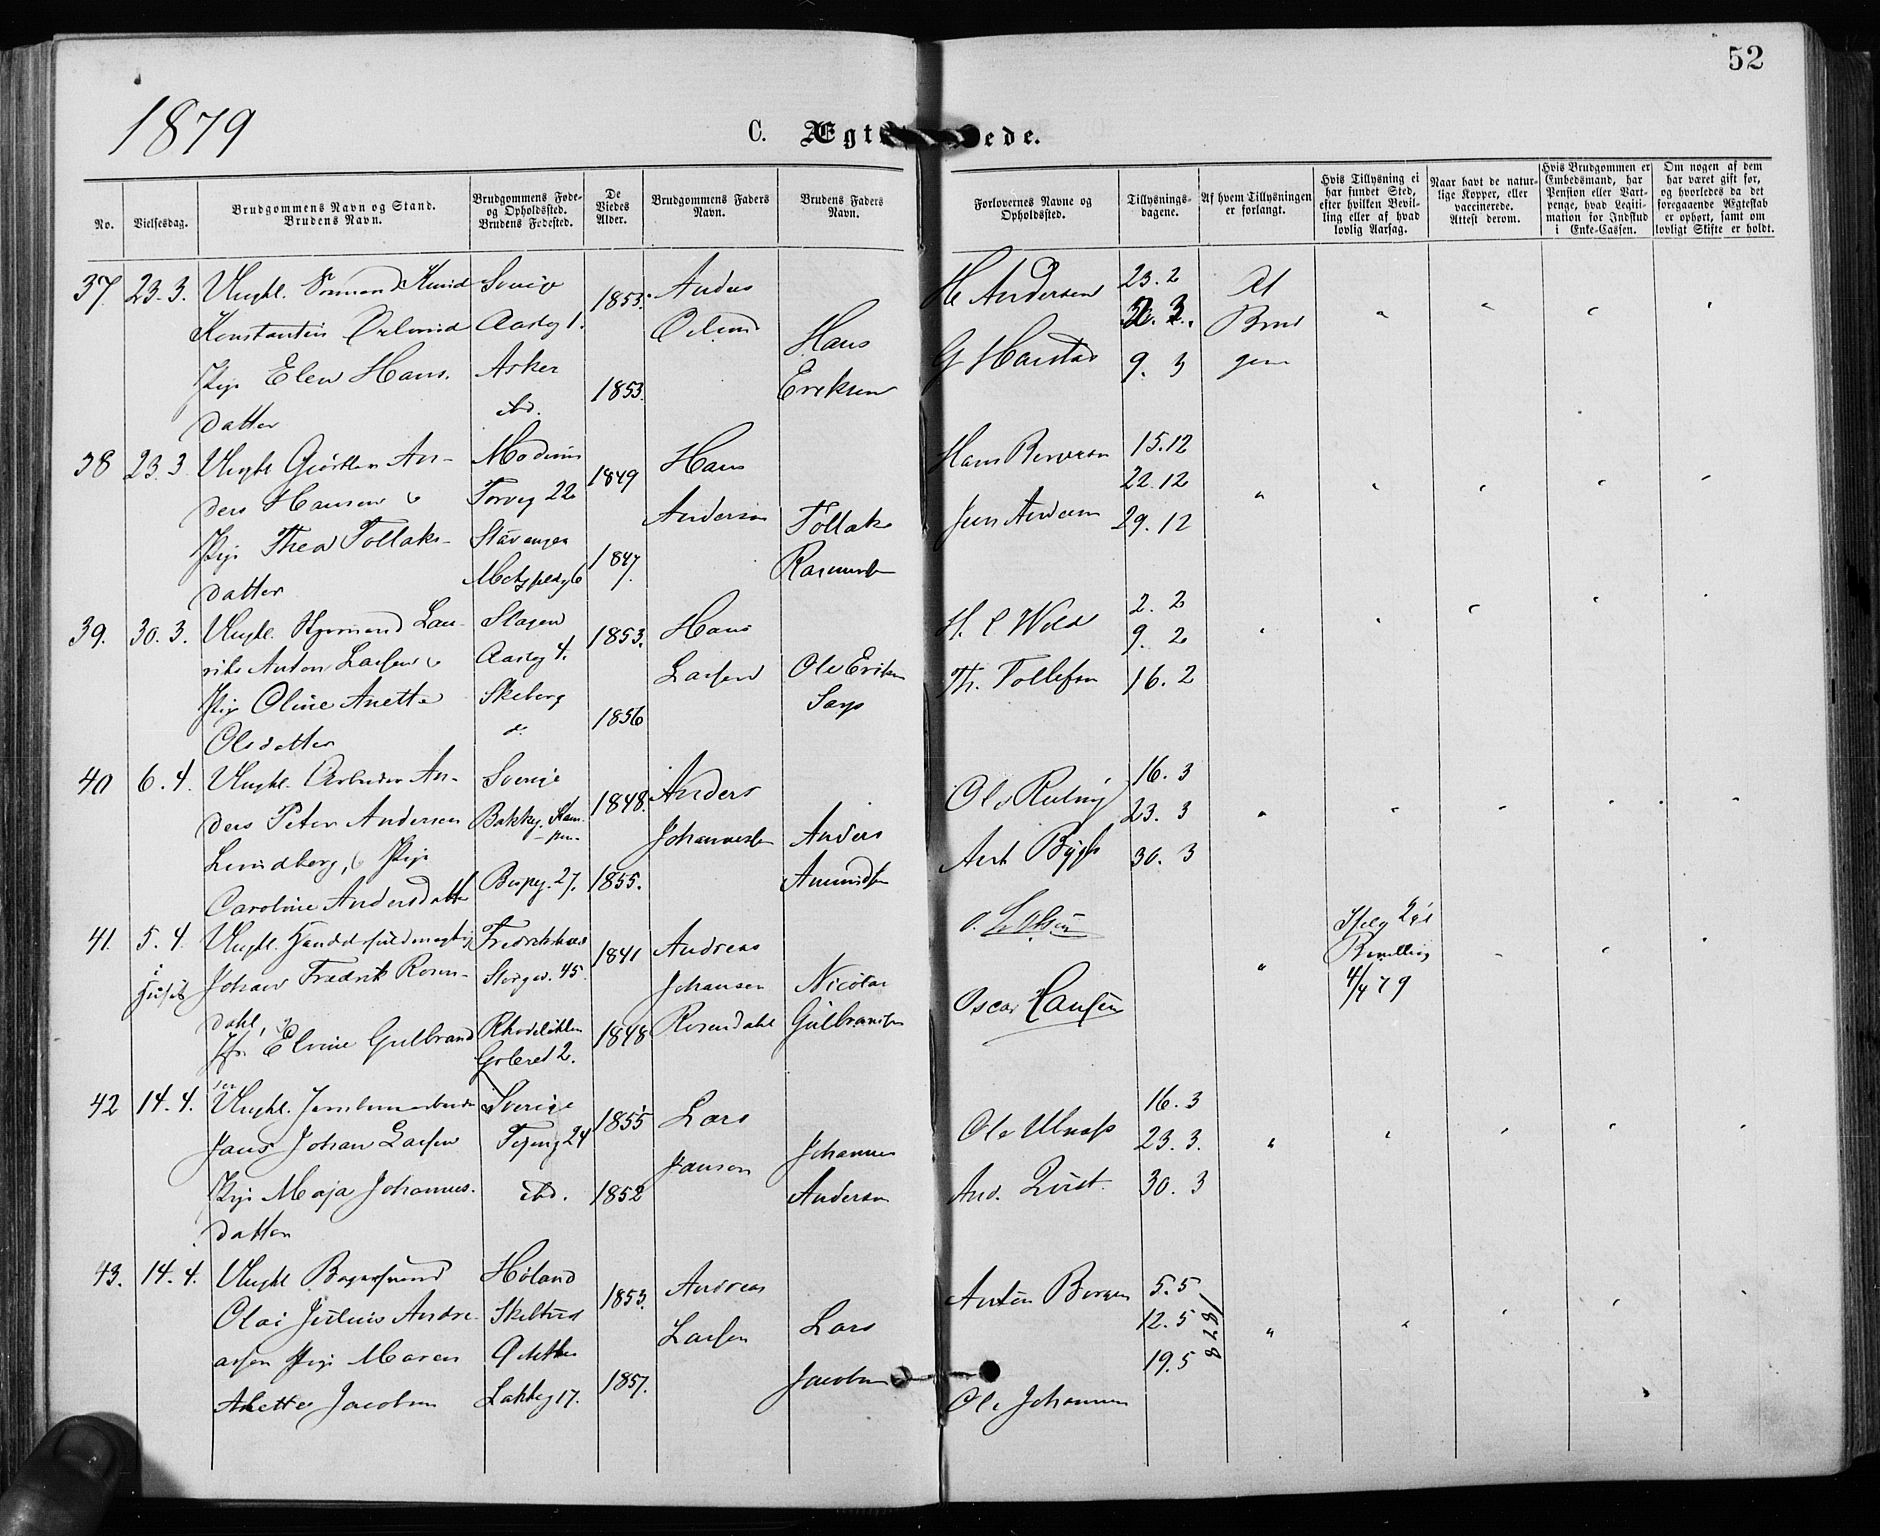 52
1879
C. Ægt ede.
No.
Vielsesdag.
Brudgommens Navn og Stand.
Brudens Navn.
Brudgommens Føde-
og Opholdssted.
Brudens Fødested.
De
Viedes
Alder.
Brudgommens Faders
Navn.
Brudens Faders
Navn.
Forlovernes Navne og
Opholdssted.
Tillysnings-
dagene.
Af hvem Tillysningen
er forlangt.
Hvis Tillysning ei
har fundet Sted,
efter hvilken Bevil-
ling eller af hvad
lovlig Aarsag.
Naar havt de natur-
lige Kopper, eller
vaccinerede.
Attest derom.
Hvis Brudgommen er
Embedsmand, har
Pension eller Vart-
penge, hvad Legiti-
mation for Indskud
i Enke-Cassen.
Om nogen af dem
har været gift før,
og hvorledes da det
foregaaende Ægteskab
er ophørt, samt om
lovligt Skifte er holdt.
37 23.3. Ungkl.
Konstantin
Pige Elen Hans.
datter
Sverige
Aasteg 1.
Asker
ibd.
1853.
1853.
Anders
Hans
Eriksen
H Andersen
G Harstad
23.2
9. 3
Af
Brud
gom
38 23.3 Ungkl Gjørtler An-
ders Hansen &
Pige Thea Tollaks-
datter
Modum
Torvg 22
Stavanger
1849
1847.
Hans
Andersen
Tollak
Rasmussen
Jens Andersen
15.12
22.12
29.12
39. 30.3. Ungkl. Lau-
rits Anton Larsen &
Pige Oline Anette
Olsdatter
Slagen
Aasteg 4.
Skeberg
1853.
1856
Hans
Larsen
Ole Eriksen
H. C Wold
Th. Tollefsen
2. 2
9. 2
16. 2
40 6.4. Ungkl. Arbeider An-
ders Peter Andersen
Lundberg, & Pige
Caroline Andersdatter
Sverige
Bakkeg. Kam-
pen.
Bispeg. 27.
1848.
1855.
Anders
Johannessen
Anders
Amundsen
Ole
16. 3
23. 3
30. 3
41. 5.4.
i
Huset
Ungkl. Handelsfuldmægtig
Johan Fredrik Rosen-
dahl, &
Jfr. Elvine Gulbrand
sen
Fredrikshald
Storgd. 45.
Rhodeløkken
1841
1848
Andreas
Johansen
Rosendahl
Nicolai
Gulbrandsen
Oscar Hansen
Ifølg
Bevilling
4/4 79
42 14.4. Ungkl. Jernbanearbeider
Jans Johan Larsen
Pige Maja Johannes.
datter
Sverige
ibd.
1855
1852
Lars
Janson
Johannes
Anderson
And. Qvist.
16. 3
23. 3.
30. 3
43. 14.4. Ungkl Bagersvend
Olai Julius Andre-
asen Pige Maren
Anette Jacobsen
Høland
Lakkeg 17.
1853.
1857.
Andreas
Larsen
Lars
Jacobsen
Anton Borgen
Ole Johannesen
5.5
12.5
19.5
1878